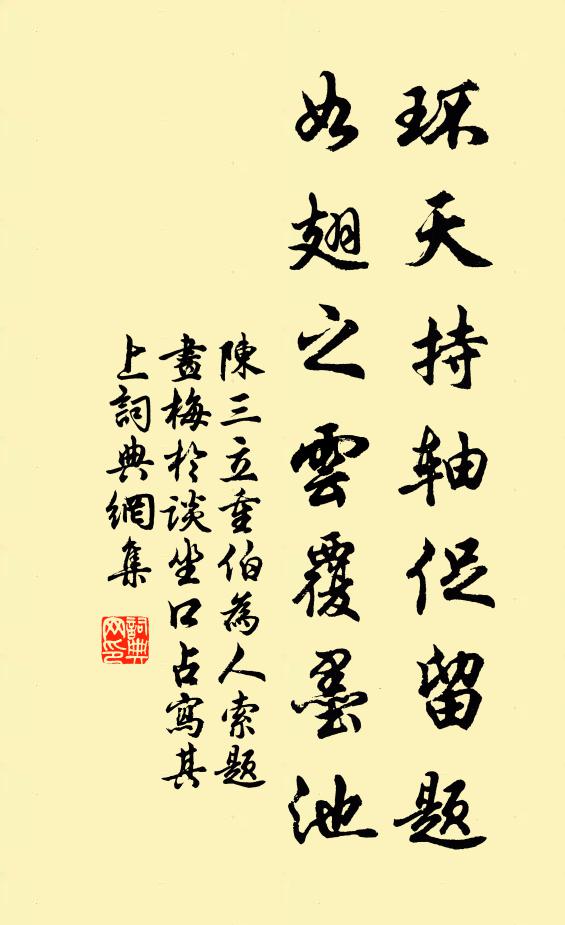 环天持轴促留题
如翅之雲覆墨池
陳三立重伯為人索題
畫梅於談坐口占寫其
上詞典網集
詞典
网印